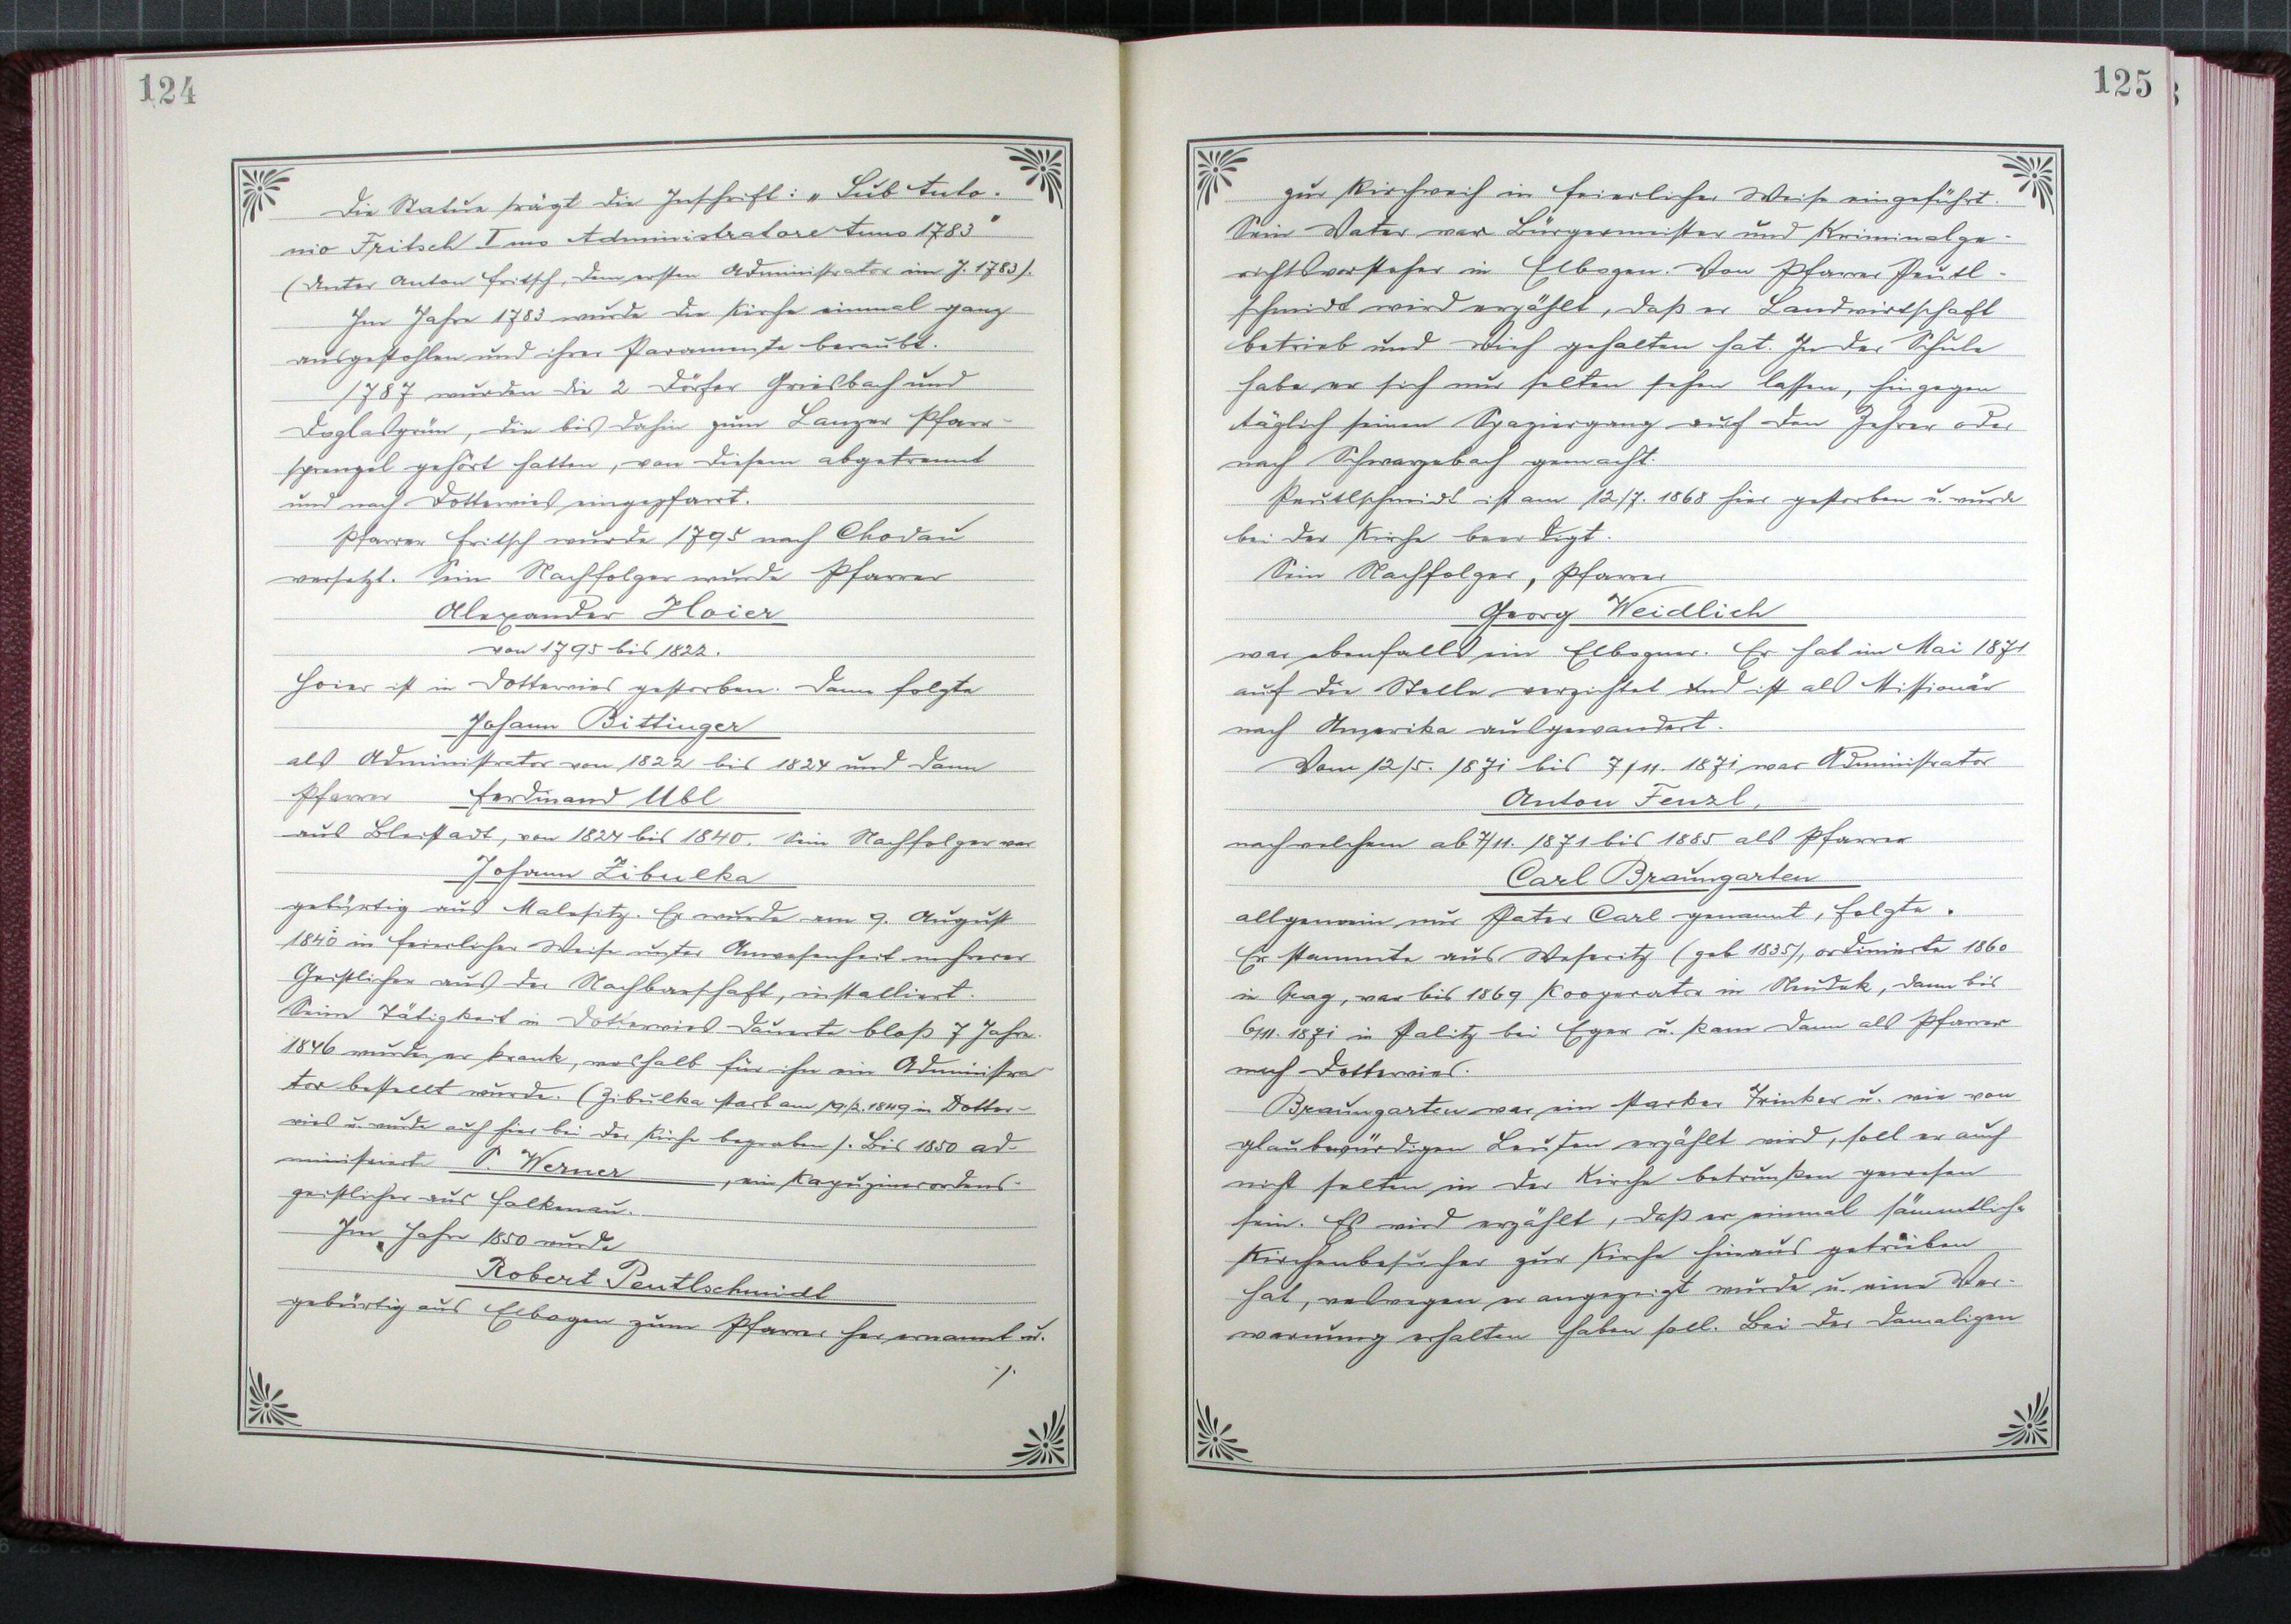 124
Die Statue trägt die Inschrift: „Sub Anto-
nio Fritsch I mo Administratore Anno 1783“
(Unter Anton Fritsch, dem ersten Administrator im J. 1783).
Im Jahre 1783 wurde die Kirche einmal ganz
ausgestohlen und ihrer Paramente beraubt.
1787 wurden die 2 Dörfer Griesbach und
Doglasgrün, die bis dahin zum Lanzer Pfarr-
sprengel gehört hatten, von diesem abgetrennt
und nach Dotterwies eingepfarrt.
Pfarrer Fritsch wurde 1795 nach Chodau
versetzt. Sein Nachfolger wurde Pfarrer
Alexander Hoier
von 1795 bis 1822.
Hoier ist in Dotterwies gestorben. Dann folgte
Johann Bittinger
als Administrator von 1822 bis 1824 und dann
Pfarrer Ferdinand Ubl
aus Bleistadt, von 1824 bis 1840. Sein Nachfolger war
Johann Zibulka
gebürtig aus Malesitz. Er wurde am 9. August
1840 in feierlicher Weise unter Anwesenheit mehrerer
Geistlicher aus der Nachbarschaft, installiert.
Seine Tätigkeit in Dotterwies dauerte bloß 7 Jahre.
1846 wurde er krank, weshalb für ihn ein Administra-
tor bestellt wurde. (Zibulka starb am 19/2. 1849 in Dotter-
wies u. wurde auch hier bei der Kirche begraben). Bis 1850 ad-
ministrierte P. Werner, ein Kapuzinerordens-
geistlicher aus Falkenau.
Im Jahre 1850 wurde
Robert Peutlschmidt
gebürtig aus Elbogen zum Pfarrer her ernannt u.
./.
125
zur Kirchweih in feierlicher Weise eingeführt.
Sein Vater war Bürgermeister und Kriminalge-
richtsvorsteher in Elbogen. Von Pfarrer Peutl-
schmidt wird erzählt, daß er Landwirtschaft
betrieb und Vieh gehalten hat. In der Schule
habe er sich nur selten sehen lassen, hingegen
täglich seinen Spaziergang auf den Zehrer oder
nach Schwarzebach gemacht.
Peutlschmidt ist am 12/7. 1868 hier gestorben u. wurde
bei der Kirche beerdigt.
Sein Nachfolger, Pfarrer
Georg Weidlich
war ebenfalls ein Elbogner. Er hat im Mai 1871
auf die Stelle verzichtet und ist als Missionär
nach Amerika ausgewandert.
Vom 12/5. 1871 bis 7/11. 1871 war Administrator
Anton Fenzl,
nach welchem ab 7/11. 1871 bis 1885 als Pfarrer
Carl Braumgarten
allgemein nur Pater Carl genannt, folgte.
Er stammte aus Weseritz (geb 1835), ordinierte 1860
in Prag, war bis 1869 Kooperator in Neudek, dann bis
6/11. 1871 in Palitz bei Eger u. kam dann als Pfarrer
nach Dotterwies.
Braumgarten war ein starker Trinker u. wie von
glaubwürdigen Leuten erzählt wird, soll er auch
nicht selten in der Kirche betrunken gewesen
sein. Es wird erzählt, daß er einmal sämmtliche
Kirchenbesucher zur Kirche hinaus getrieben
hat, weswegen er angezeigt wurde u. eine Ver-
warnung erhalten haben soll. Bei der damaligen